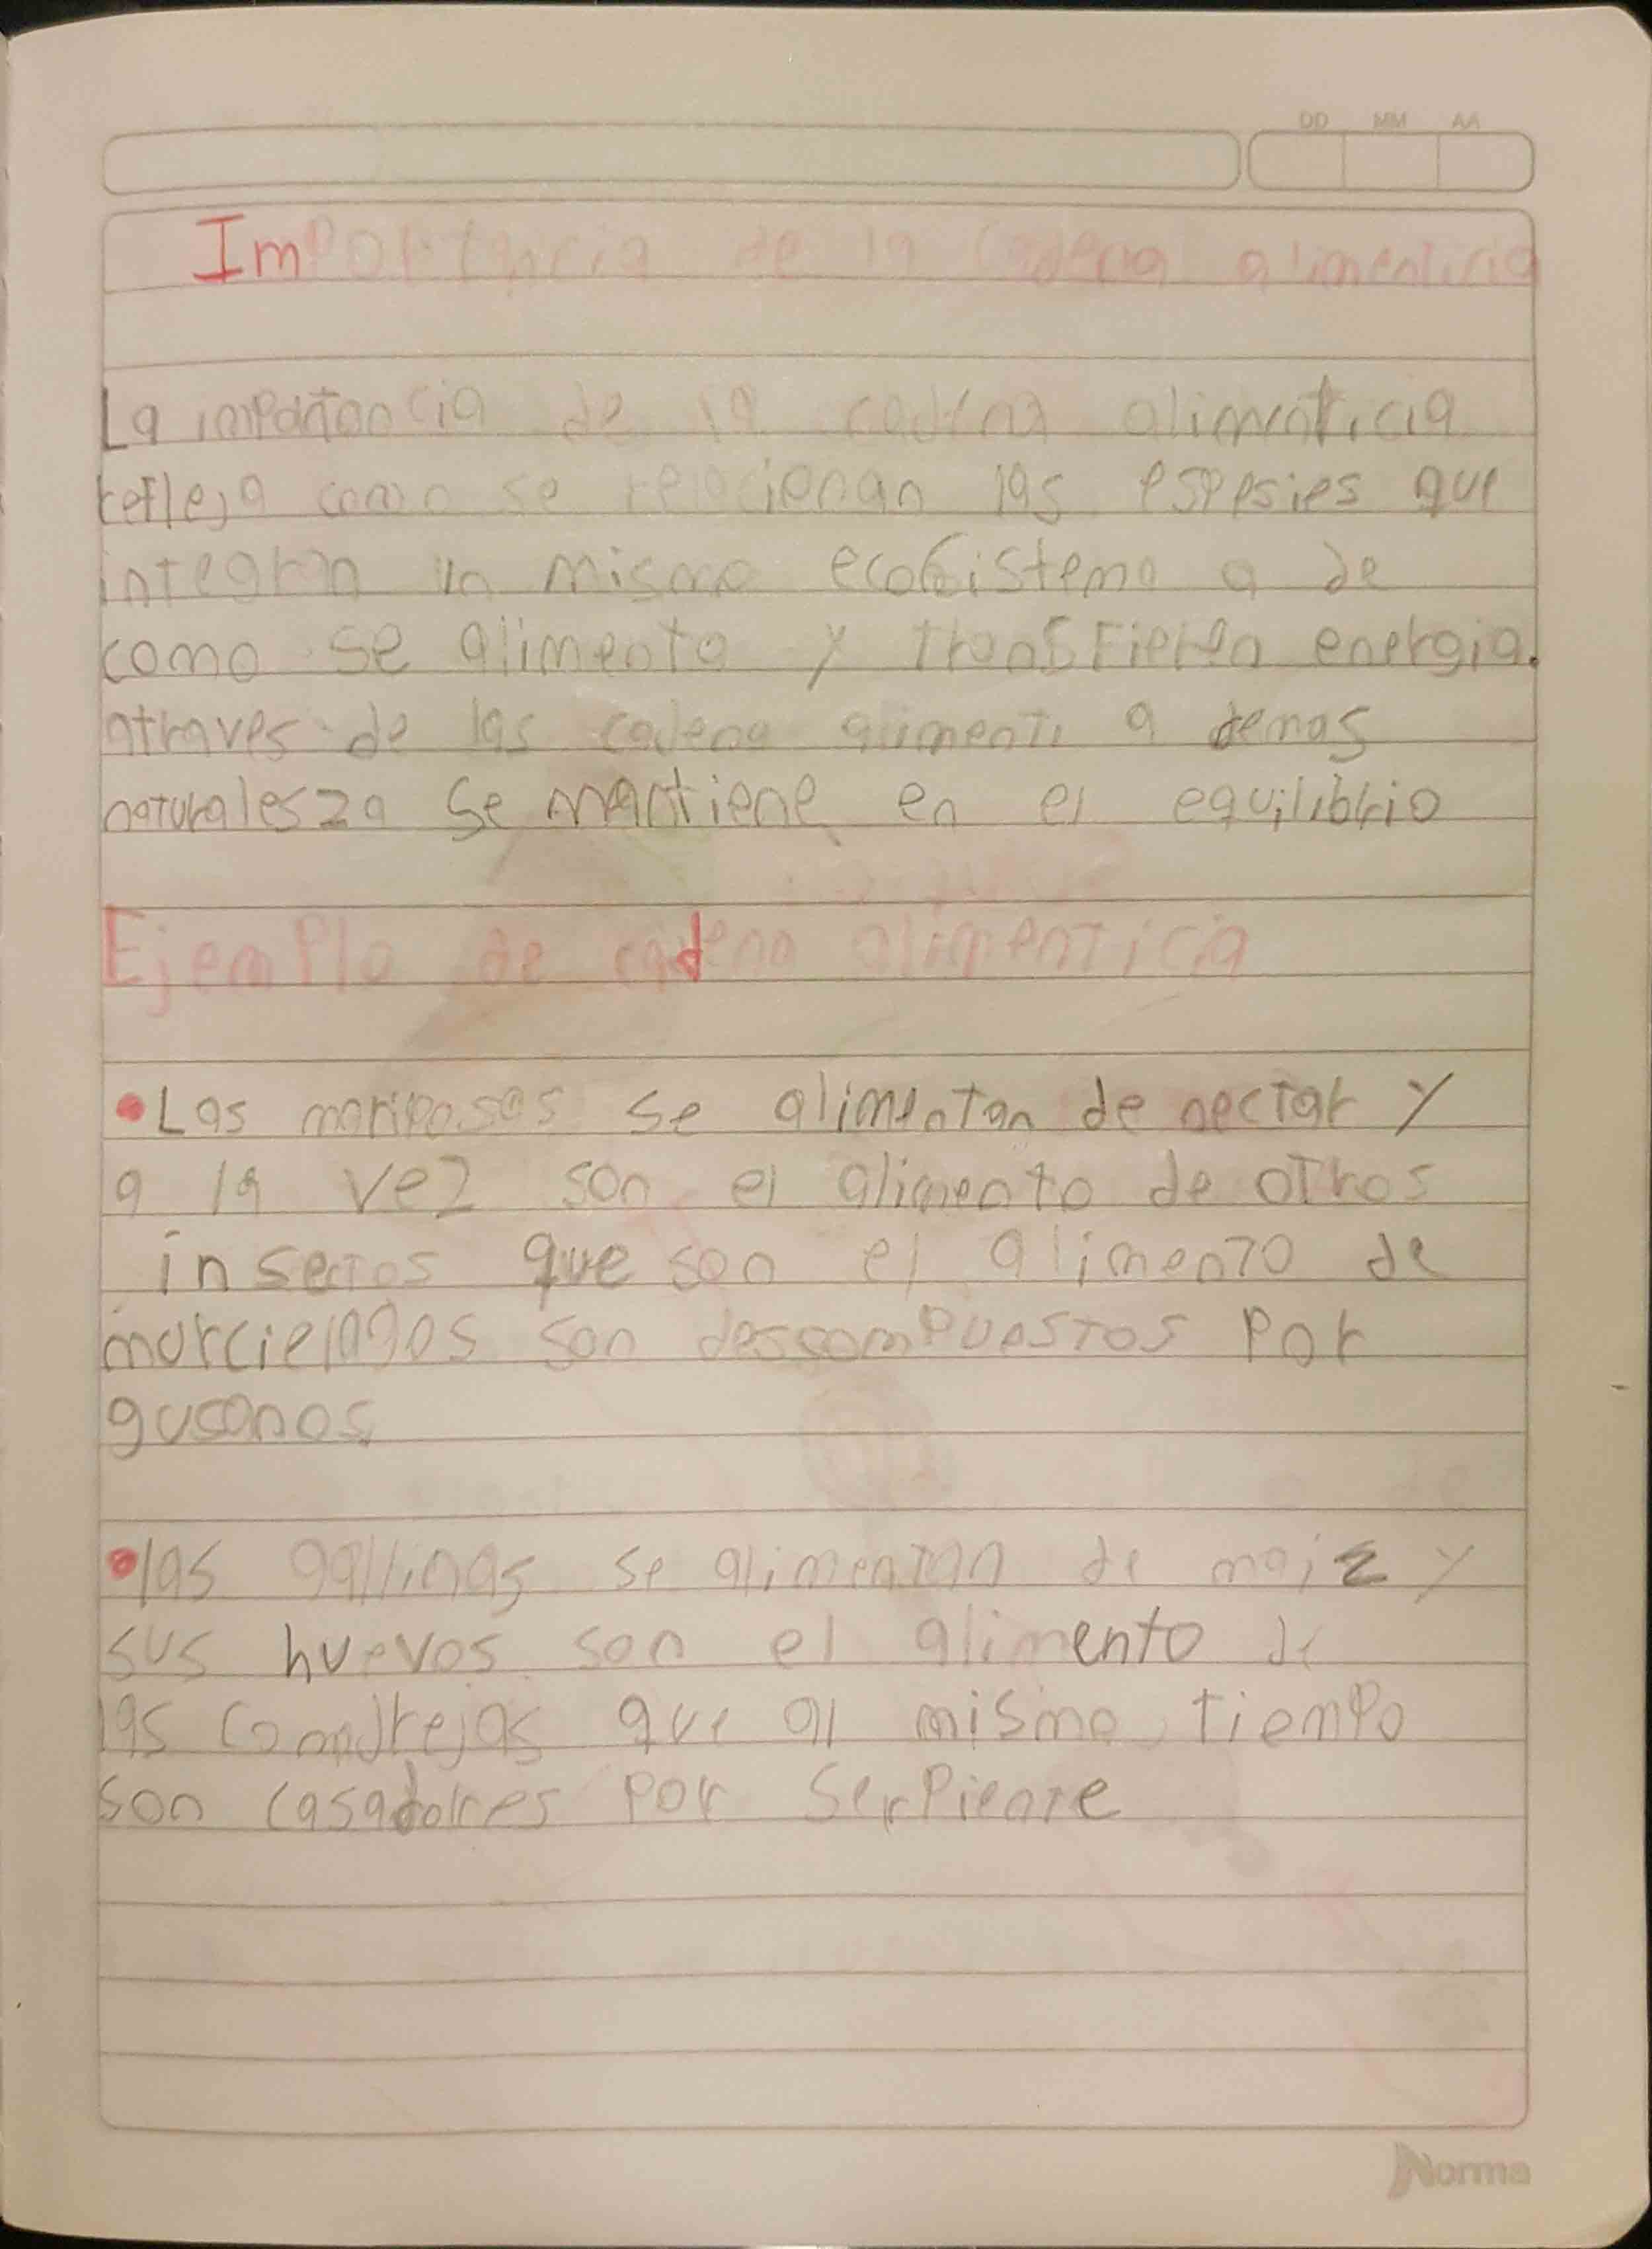 DD MM AA
Importancia de la Cadena alimenticia
La importancia de la cadena alimenticia
refleja como se relacionan las espesies que
integran un mismo ecosistema a de
como se alimenta y transfieren energia.
atraves de las cadena alimenti a demas
naturalesza se mantiene en el equilibrio
Ejemplo de cadena alimenticia
• Las mariposas se alimentan de nectar y
a la vez son el alimento de otros
insectos que son el alimento de
murcielagos son descompuestos por
gusanos
• las gallinas se alimentan de maiz y
sus huevos son el alimento de
las comadrejas que al mismo tiempo
son casadores por serpiente
Norma